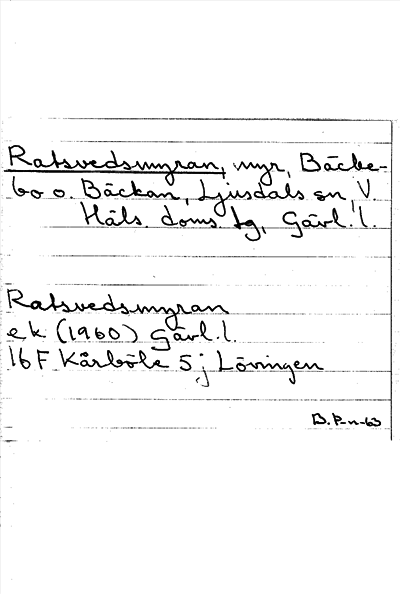 Ratsvedsmyran, myr, Bäcke-
bo o. Bäckan, Ljusdals sn, V.
Häls. doms. tg, Gävl. l.
Ratsvedsmyran
ek (1960) Gävl. l.
16 F Kårböle S j Lövingen
B. P-n-63